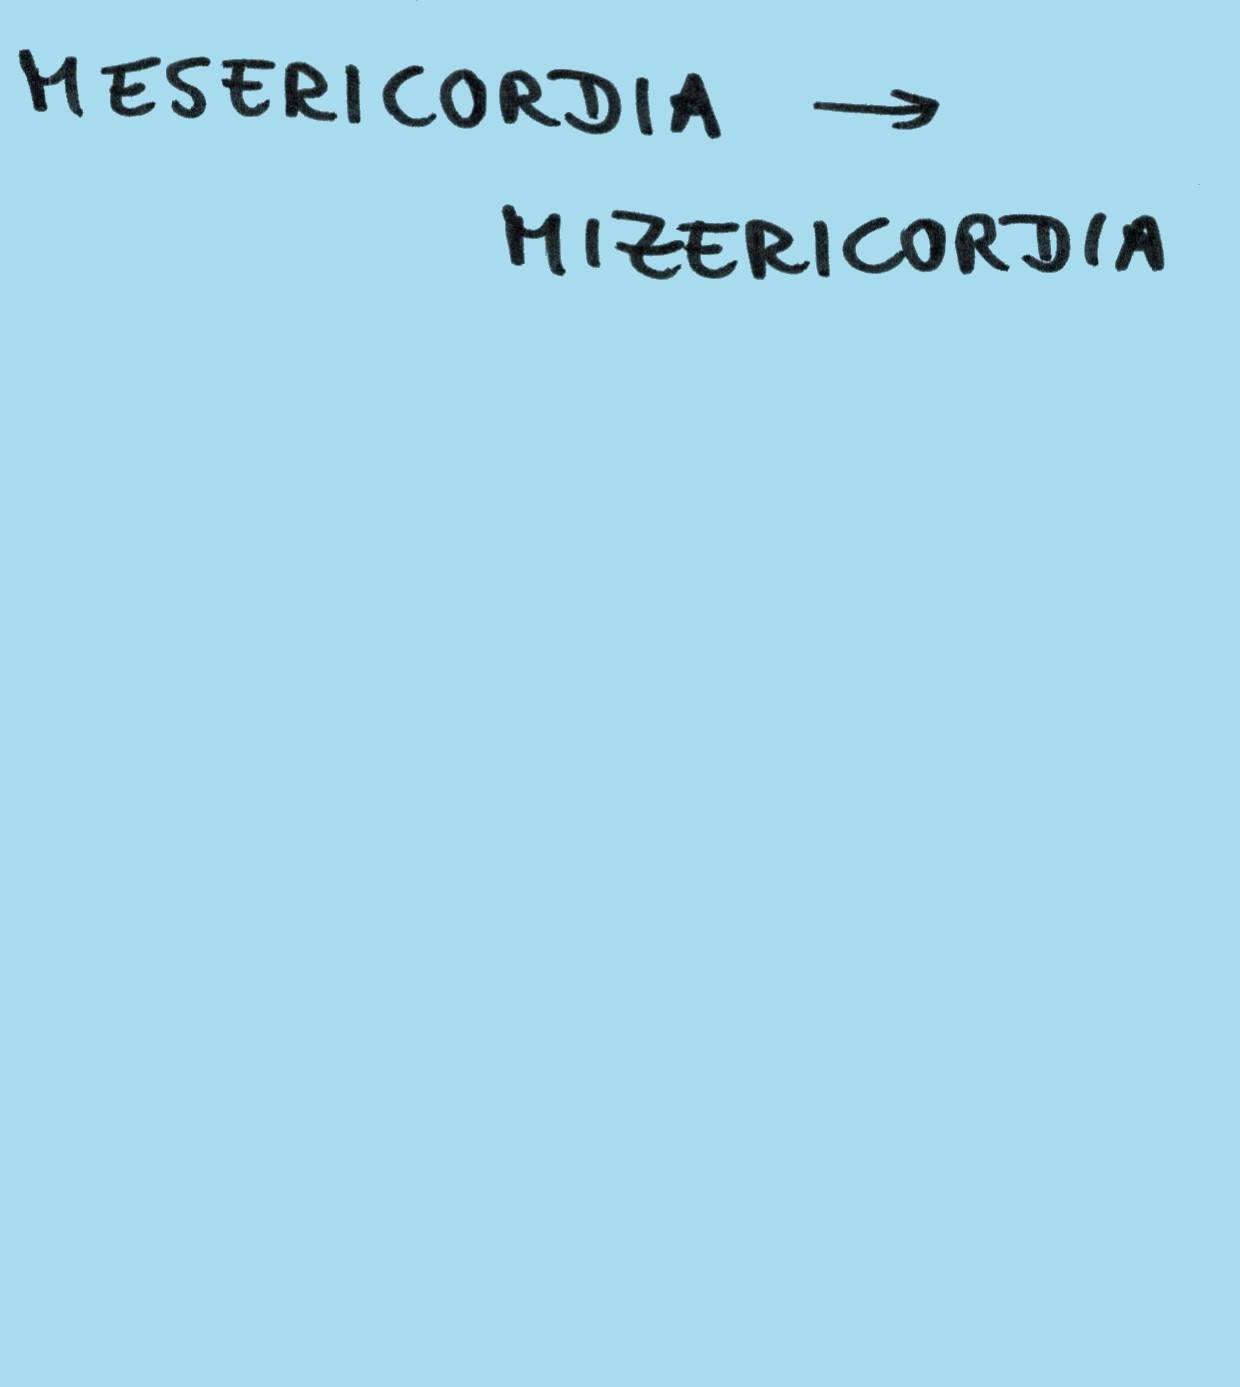 MESERICORDIA →
MIZERICORDIA